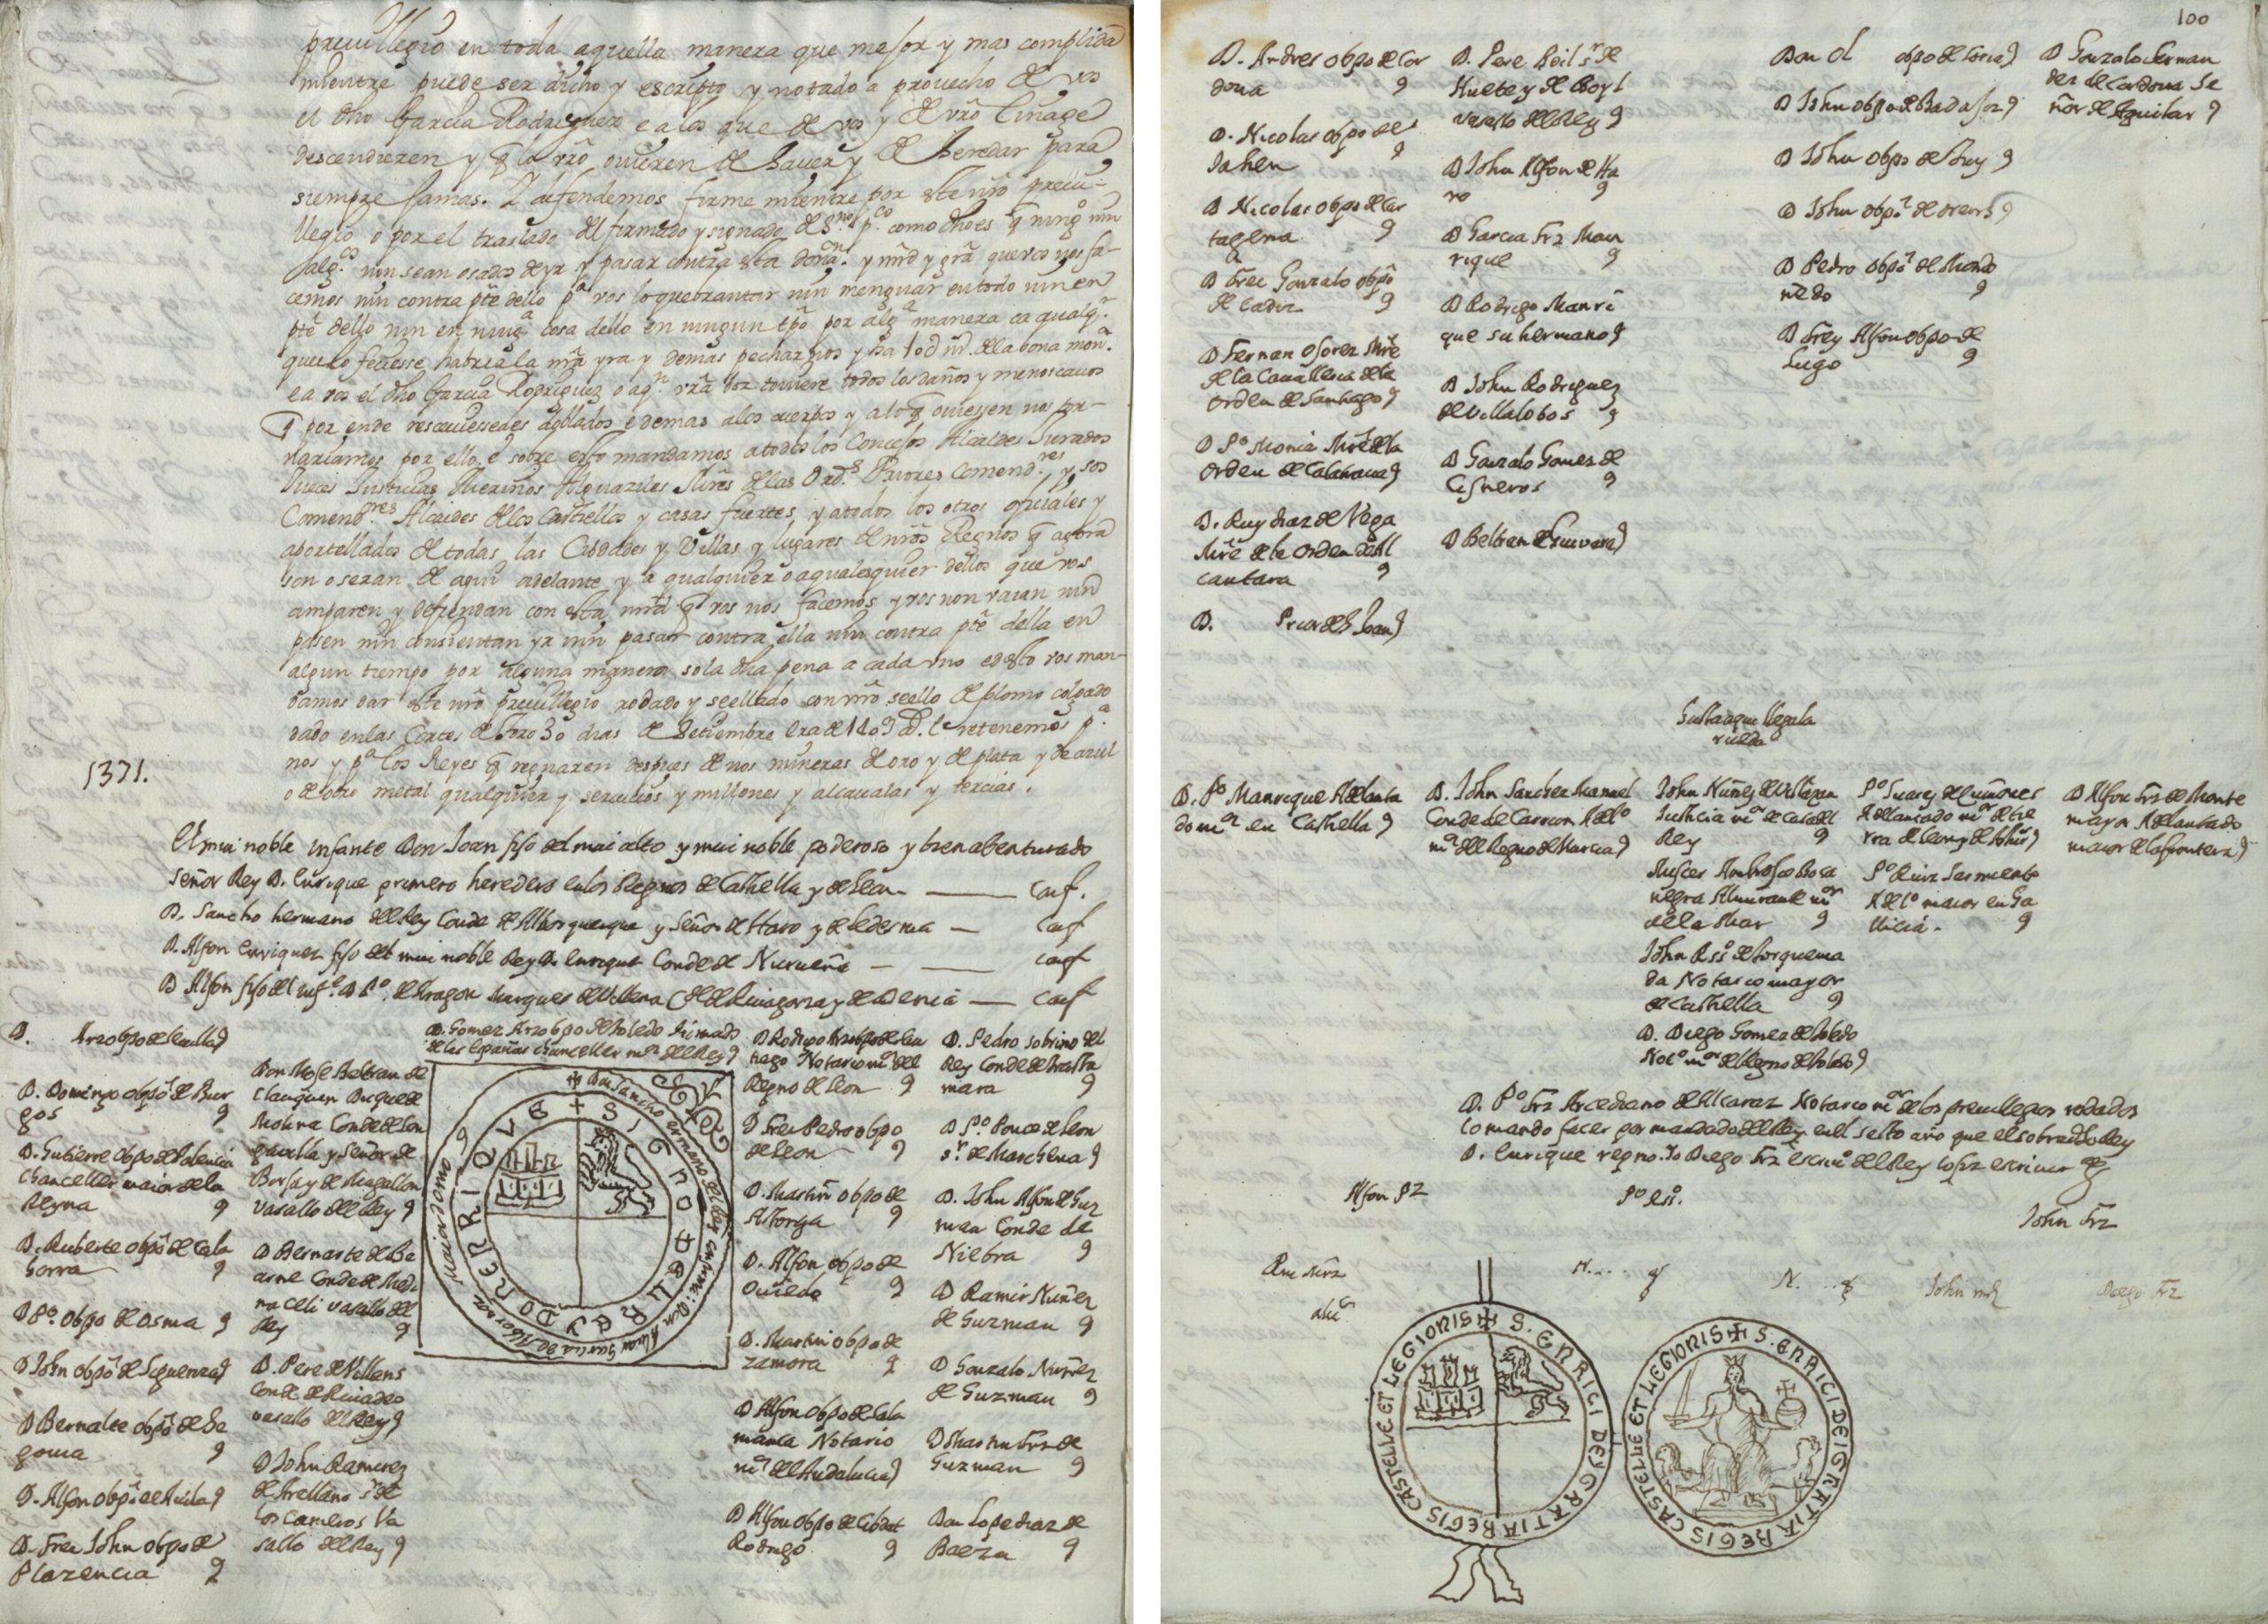 preuillegio en toda aquella manera que mejor y mas complida
mientre puede ser dicho y escripto y notado a prouecho de vos
el dho Garcia Rodriguez e a los que de vos y de vr̃o linage
descendieren y q̃ lo vr̃o ouieren de hauer y de heredar para
siempre jamas. E defendemos firme mientre por este nr̃o preui-
llegio o por el traslado del firmado y signado de s.no p.co como dho es q̃ ningo nin
algos nin sean osados de yr y pasar contra esta donan. y mrd y gr̃a que vos nos fa-
cemos nin contra pte dello pa vos lo quebrantar nin menguar en todo nin en
pte dello nin en ninga cosa dello en ningun tpo por alga manera ca qualqr.
que lo feciesse habria la nr̃a yra y demas pechar nos
ea vos el dho Garcia Rodriguez o aqn. vr̃a boz touiere todos los daños y menoscauos
q̃ por ende resciuiessedes doblados e demas a los cuerpos y a lo q̃ ouiessen nos tor-
nariamos por ello. e sobre esto mandamos a todos los Concejos Alcaldes Jurados
Jueces Justicias Merinos Alguaziles Mr̃es de las Ord.s Priores Comend.res y sos
Comend.res Alcaides de los Castiellos y casas fuertes y a todos los otros oficiales y
aportellados de todas las Cibdades y Villas y lugares de nr̃os Regnos q̃ agora
son o seran de aqui adelante y a qualquier o a qualesquier dellos que vos
amparen y defiendan con esta mrd q̃ vos nos facemos y vos non vaian nin
pasen nin consientan yr nin pasar contra ella nin contra pte della en
algun tiempo por alguna manera so la dha pena a cada vno e desto vos man-
damos dar este nr̃o preuillegio rodado y seellado con nr̃o seello de plomo colgado
dado en las Cortes de Toro 30 dias de Setiembre Era de 1409 @. E retenemos pa.
1371.
nos y pa los Reyes q̃ regnaren despues de nos mineras de oro y de plata y de azul
o de otro metal qualquier y seruicios y millones y alcaualas y tercias.
El mui noble Infante Don Joan fijo del mui alto y mui noble poderoso y bien abenturado
señor Rey D. Enrique primero heredero en los Regnos de Castella y de Leon — conf.
D. Sancho hermano del Rey Conde de Alborquerque y Señor de Haro y de Ledesma — conf
D. Alfon Enriquez fijo del mui noble Rey D. Enrique Conde de Nurueña — conf
D Alfon fijo del Infe. D Po. de Aragon Marques de Villena Cde de Riuagorza y de Denia — conf
D. Arzobpo de Seuilla 9
D. Domingo obpo de Bur
gos 9
D. Gutierre obpo de Palencia
chanceller maior de la
Reyna 9
D. Ruberte obpo de Cala
horra 9
D Po. obpo de Osma 9
D John obpo de Siguenza 9
D Bernalte obpo de Se
gouia 9
D. Alfon obpo de Auila 9
D. Frei John obpo de
Plazencia 9
Don Mose Beltran de
Claquin Duque de
Molina Conde de Lon
gauilla y Señor de
Borja y de Magallon
vasallo del Rey 9
D Bernarte de Be
arne Conde de Medi
na celi vasallo del
Rey 9
D. Pere de Villens
conde de Riuadeo
vasallo del Rey 9
D John Ramirez
de Arellano sr de
los cameros va
sallo del Rey 9
D. Gomez Arzobpo de Toledo Primado
de las Españas Chanceller mr del Rey 9
✠ Don Sancho ermano del Rey
Mayordomo
✠ SIGNO DEL REY DON ENRRIQUE
D Rodrigo Arzobpo de San
tiago Notario mr del
Regno de Leon 9
D Frei Pedro obpo
de Leon 9
D. Martin obpo de
Astorga 9
D. Alfon obpo de
Ouiedo 9
D. Martin obpo de
zamora 9
D Alfon obpo de Sala
manca Notario
mr del Andalucia 9
D Alfon obpo de Cibdat
Rodrigo 9
D. Pedro sobrino del
Rey Conde de Trasta
mara 9
D Po Ponce de Leon
sr. de Marchena 9
D. John Alfon de Guz
man Conde de
Niebra 9
D Ramir Nuñez
de Guzman 9
D Gonzalo Nuñez
de Guzman 9
D Martin Frz de
Guzman 9
Don Lope diaz de
Baeza 9
100
D. Andres obpo de Cor
doua 9
D. Nicolas obpo de
Jahen 9
D Nicolas obpo de Car
tagena 9
D Frei Gonzalo obpo
de Cadiz 9
D Fernan Osorez Mr̃e
de la Caualleria de la
orden de Santiago 9
D Po Moniz Mr̃e de la
Orden de Calatraua 9
D. Ruy diaz de Vega
Mr̃e de la Orden de Al
cantara 9
D. Prior de S. Joan 9
D. Pere Boil sr de
Huete y de Boyl
vasallo del Rey 9
D John Alfon de Ha
ro 9
D Garcia Frz Man
rique 9
D Rodrigo Manri
que su hermano 9
D John Rodriguez
de Villalobos 9
D Gonzalo Gomez de
Cisneros 9
D Beltran de Gueuara 9
Don d obpo de Coria 9
D John obpo de Badajoz 9
D John obpo de Tuy 9
D John obpo de Orens 9
D Pedro obpo de Mondo
ñedo 9
D Frey Alfon obpo de
Lugo 9
D Gonzalo Fernan
dez de Cordoua Se
ñor de Aguilar 9
Hasta aqui llega la
rueda
D. Po Manrique Adelanta
do mr en Castella 9
D. John Sanchez Manuel
Conde de Carrion Adelo
mr del Regno de Murcia 9
John Nuñez de Villazan
Justicia mor de casa del
Rey 9
Misser Ambrosio Boca
negra Almirante mor
de la Mar 9
John Rs̃ de Torquema
da Notario mayor
de Castella 9
D. Diego Gomez de Toledo
Noto mor del Regno de Toledo 9
Po Suarez de Quiñones
Adelantado mor de tie
rra de Leon y de Astur 9
Po Ruiz Sarmiento
Adelo maior en Ga
llicia. 9
D Alfon Frz de Monte
mayor Adelantado
maior de la frontera 9
D. Po Frz Arcediano de Alcaraz Notario mor de los preuillegios rodados
lo mando facer por mandado del Rey en el sesto año que el sobredho Rey
D. Enrique regno. Yo Diego Frz escriuo del Rey lo fiz escriuir
Alfon Pz
Po
John Frz
N....
N. ...
John
Diego Frz
✠ S. ENRICI DEI GRATIA REGIS CASTELLE ET LEGIONIS
✠ S. ENRICI DEI GRATIA REGIS CASTELLE ET LEGIONIS